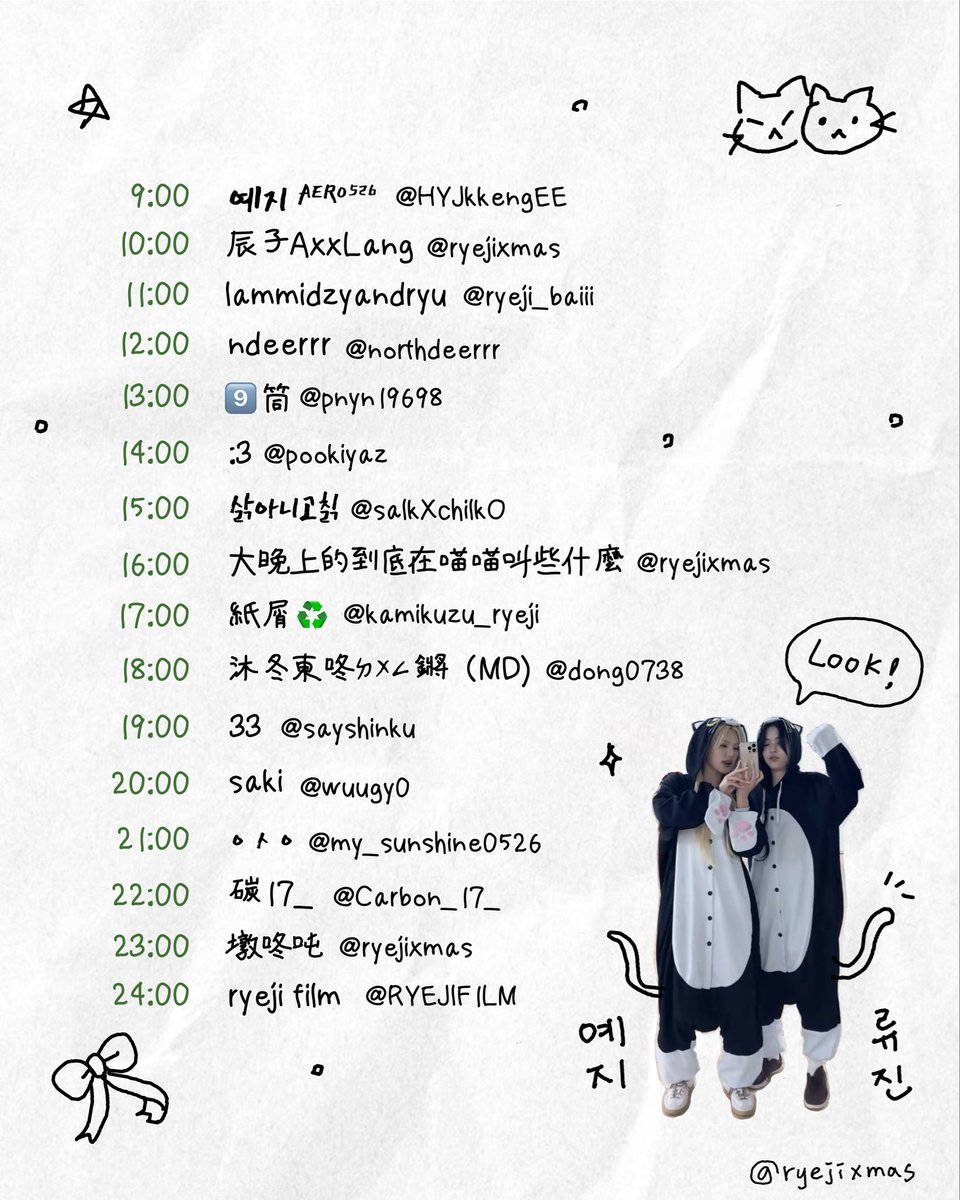 9:00 예지 AERO526 @HYJkkengEE
10:00 辰子AxxLang @ryejixmas
11:00 lammidzyandryu @ryeji_baiii
12:00 ndeerrr @northdeerrr
13:00 9️⃣筒 @pnyn19698
14:00 :3 @pookiyaz
15:00 삵아니고칡 @salkXchilkO
16:00 大晚上的到底在喵喵叫些什麼 @ryejixmas
17:00 紙屑♻️ @kamikuzu_ryeji
18:00 沐冬東咚ㄉㄨㄥ鏘 (MD) @dong0738
19:00 33 @sayshinku
20:00 saki @wuugy0
21:00 ㅇㅅㅇ @my_sunshine0526
22:00 碳17_ @Carbon_17_
23:00 墩咚吨 @ryejixmas
24:00 ryeji film @RYEJIFILM
Look!
예지
류진
@ryejixmas